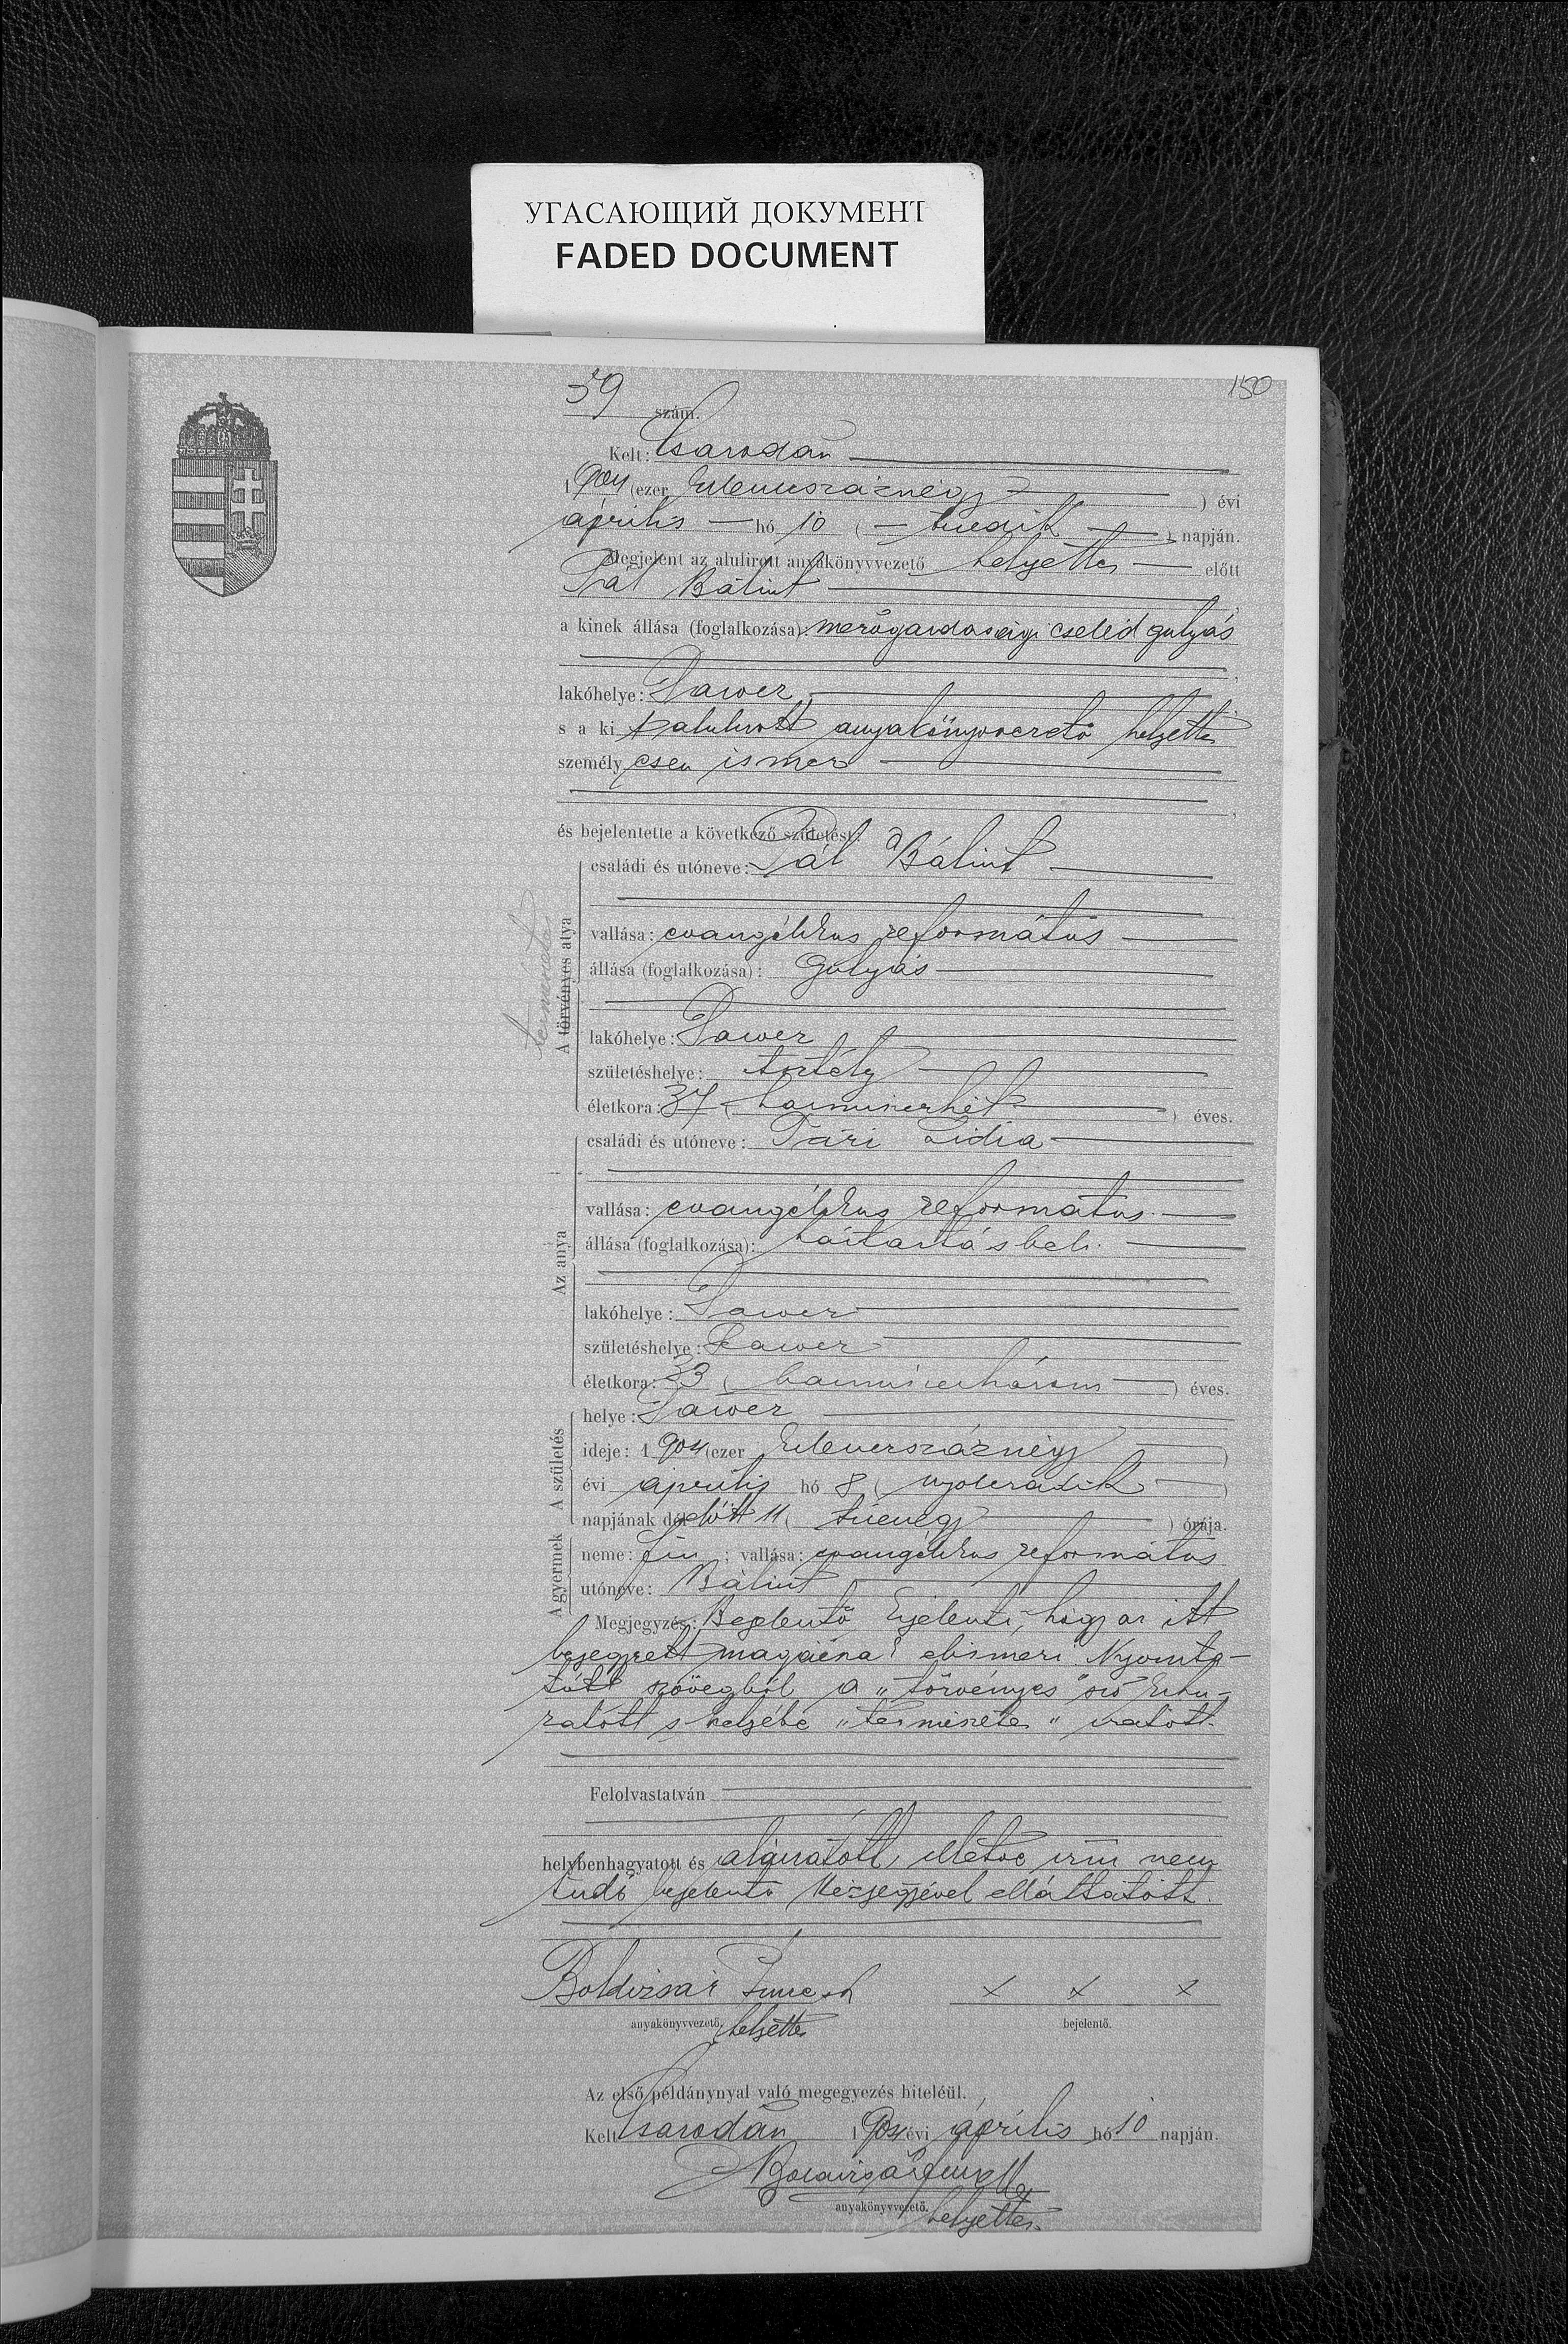 УГАСАЮЩИЙ ДОКУМЕНТ
FADED DOCUMENT
150
39 szám.
Kelt: Csarodán
1904 (ezer kilencszáznégy) évi
április hó 10 (tizedik) napján.
Megjelent az alulirott anyakönyvvezető helyettes előtt
Pál Bálint
a kinek állása (foglalkozása): mezőgazdasági cseléd gulyás
lakóhelye:
s a kit alulirott anyakönyvvezető helyettes
személyesen ismer
és bejelentette a következő születést:
természetes
A törvényes atya
családi és utóneve: Pál Bálint
vallása: evangélikus református
állása (foglalkozása): gulyás
lakóhelye:
születéshelye:
életkora: 37 (harminczhét) éves.
Az anya
családi és utóneve: Tári Lidia
vallása: evangélikus református
állása (foglalkozása): háztartásbeli
lakóhelye:
születéshelye:
életkora: 33 (harminczhárom) éves.
A születés
helye:
ideje: 1904 (ezer kilenczszáznégy
évi április hó 8 (nyolczadik)
napjának délelőtt 11 (tizenegy) órája.
A gyermek
neme: fiu; vallása: evangélikus református
utóneve: Bálint
Megjegyzés: Bejelentő kijelenti, hogy az itt
bejegyzett magáénak elismeri Nyomta-
tott szövegből a „törvényes" szó kihu-
zatott s helyébe „természetes" iratott.
Felolvastatván
helybenhagyatott és aláiratott, illetve irni nem
tudó bejelentő kézjegyével elláttatott.
Boldizsár Imre sk x x x
anyakönyvvezető. helyettes bejelentő.
Az első példánynyal való megegyezés hiteléül.
Kelt Csarodán 1904 évi április hó 10 napján.
Boldizsár Imre
anyakönyvvezető.
helyettes